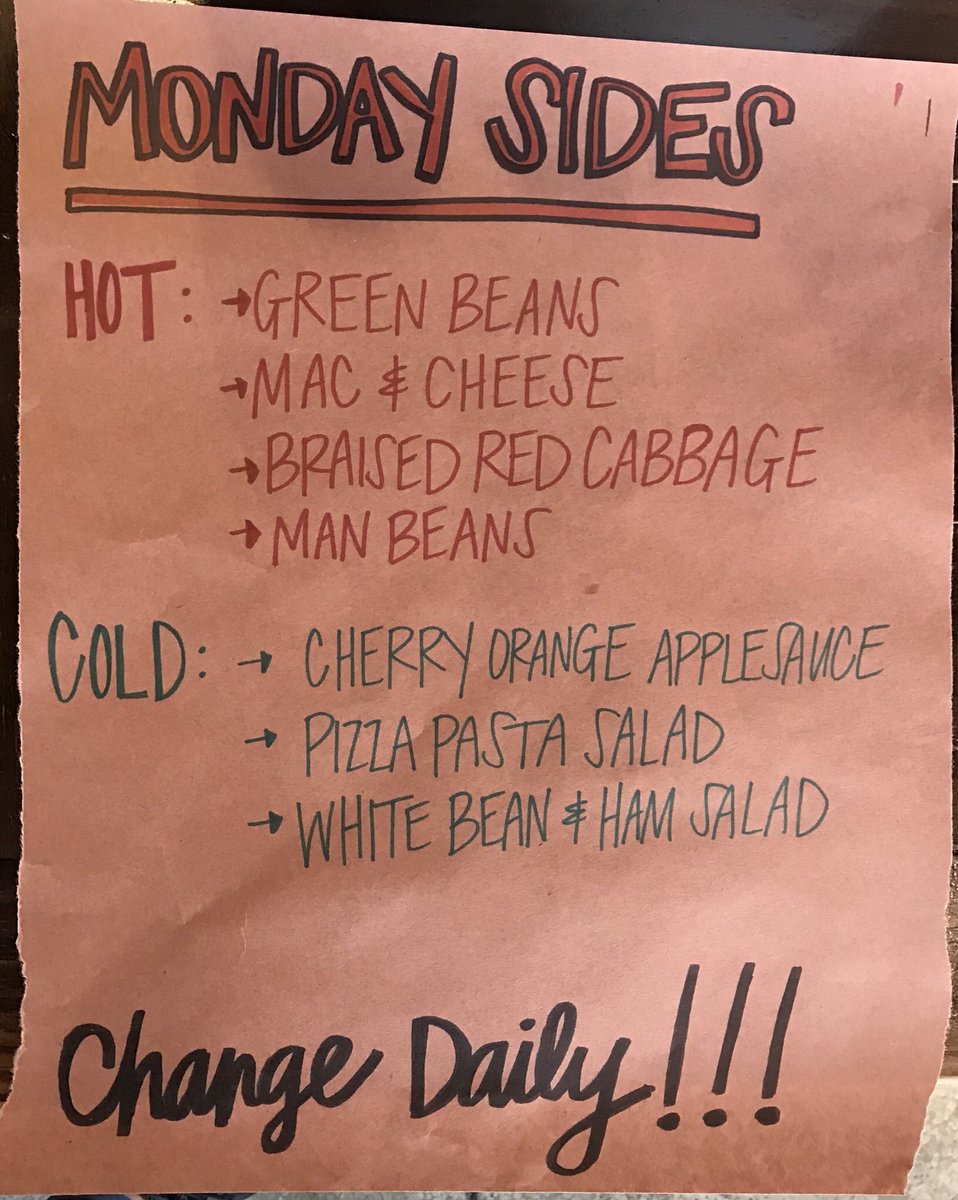 MONDAY SIDES
HOT: → GREEN BEANS
→ MAC & CHEESE
→ BRAISED RED CABBAGE
→ MAN BEANS
COLD: → CHERRY ORANGE APPLESAUCE
→ PIZZA PASTA SALAD
→ WHITE BEAN & HAM SALAD
Change Daily!!!